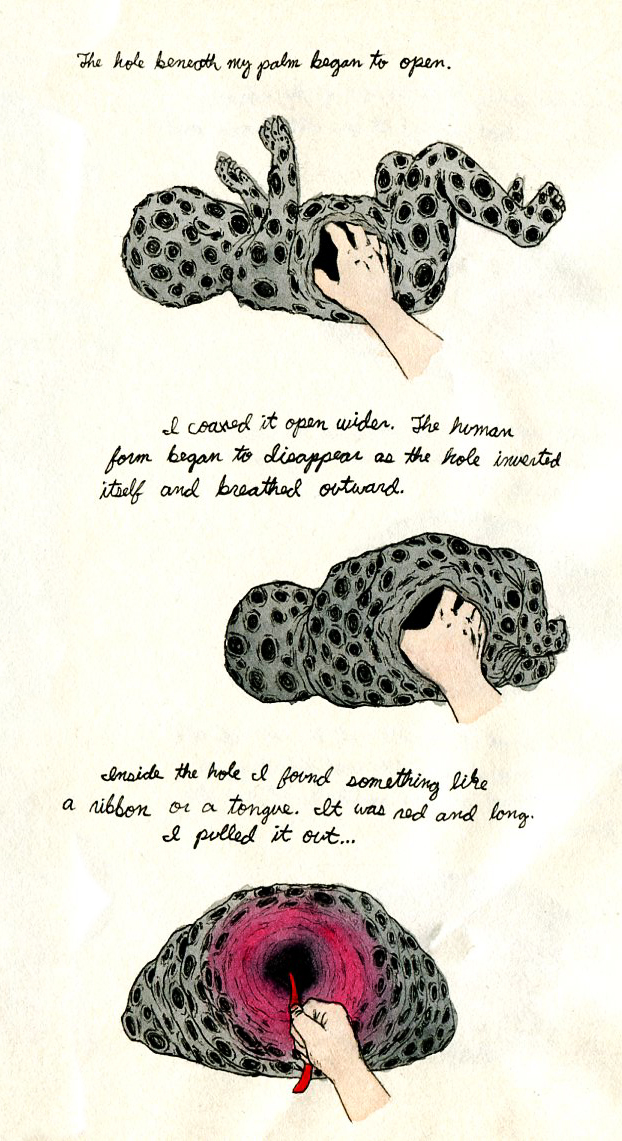 The hole beneath my palm began to open.
I coaxed it open wider. The human
form began to disappear as the hole inverted
itself and breathed outward.
Inside the hole I found something like
a ribbon or a tongue. It was red and long.
I pulled it out...